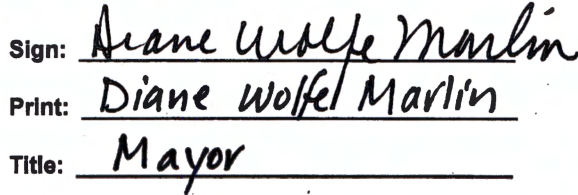 Sign: Diane Wolfe Marlin
Print: Diane Wolfe Marlin
Title: Mayor